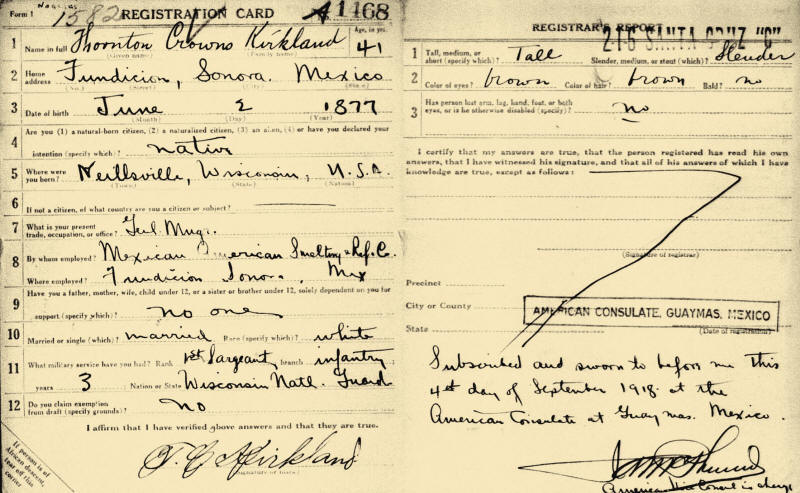 Form 1
1582
REGISTRATION CARD
1 Name in full Thornton Crowns Kirkland Age, in yrs. 41
(Given name) (Family name)
2 Home address Fundicion, Sonora. Mexico
(No.) (Street) (City) (State)
3 Date of birth June 2 1877
(Month) (Day) (Year)
4 Are you (1) a natural-born citizen, (2) a naturalized citizen, (3) an alien, (4) or have you declared your
intention (specify which)? native
5 Where were you born? Neillsville, Wisconsin, U.S.A.
(Town) (State) (Nation)
6 If not a citizen, of what country are you a citizen or subject?
7 What is your present trade, occupation, or office?
8 By whom employed? Mexican American Smelting & Ref. Co.
Where employed? Fundicion Sonora, Mex
9 Have you a father, mother, wife, child under 12, or a sister or brother under 12, solely dependent on you for
support (specify which)? no one
10 Married or single (which)? married Race (specify which)? white
11 What military service have you had? Rank 1st Sargeant branch infantry
years 3 Nation or State Wisconsin Natl. Guard
12 Do you claim exemption from draft (specify grounds)? No
I affirm that I have verified above answers and that they are true.
T. C. Kirkland
If person is of African descent, tear off this corner
REGISTRAR'S REPORT
216 SANTA CRUZ "C"
1 Tall, medium, or short (specify which)? Tall Slender, medium, or stout (which)? Slender
2 Color of eyes? brown Color of hair? brown Bald? no
3 Has person lost arm, leg, hand, foot, or both
eyes, or is he otherwise disabled (specify)? no
I certify that my answers are true, that the person registered has read his own
answers, that I have witnessed his signature, and that all of his answers of which I have
knowledge are true, except as follows:
(Signature of registrar)
Precinct
City or County
AMERICAN CONSULATE, GUAYMAS, MEXICO
State
(Date of registration)
Subscribed and sworn to before me this
4st day of September 1918. at the
American Consulate at Guaymas. Mexico.
American Vice Consul in charge